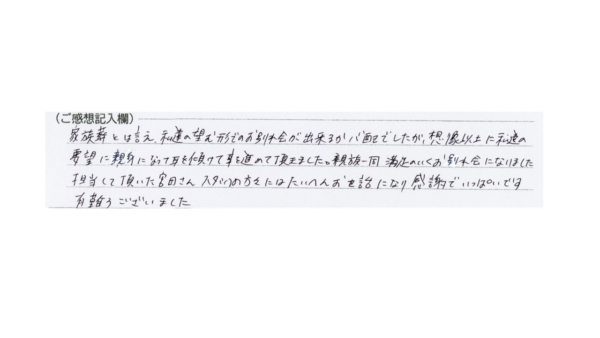 (ご感想記入欄)
家族葬とは言え、私達の望む形でのお別れ会が出来るか心配でしたが、想像以上に私達の
要望に親身になって耳を傾けて事を進めて頂きました。親族一同 満足のいくお別れ会になりました
担当して頂いた宮田さん スタッフの方々にはたいへんお世話になり感謝でいっぱいです
有難うございました